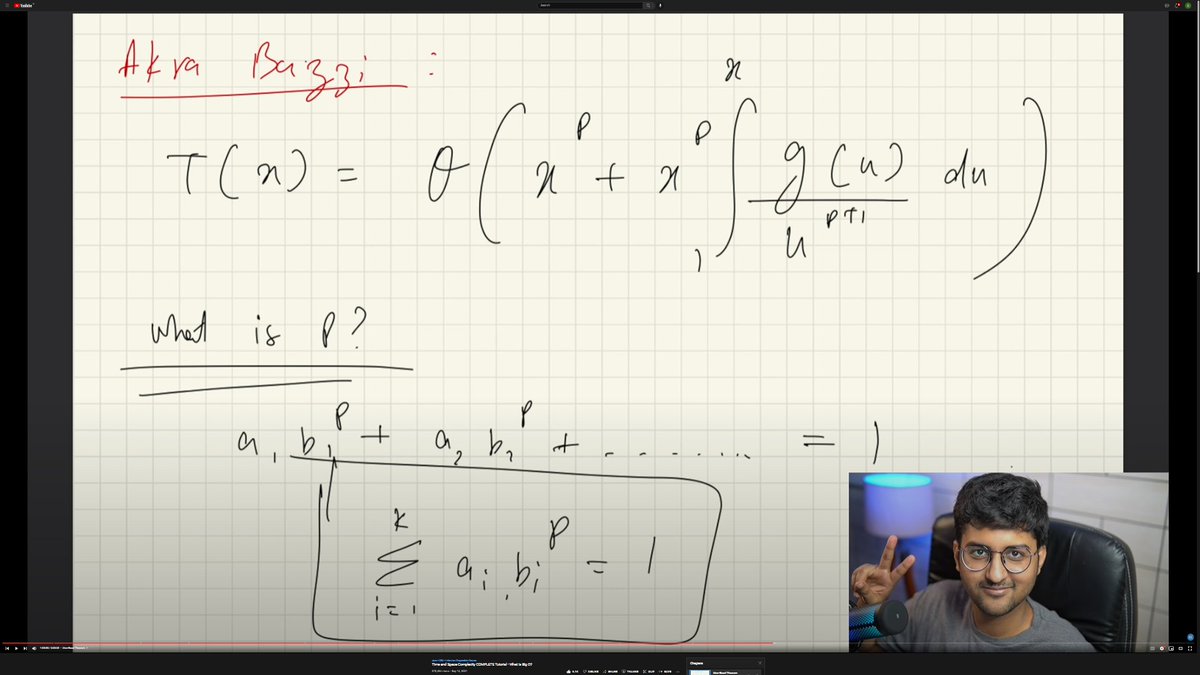 YouTube
Search
Akra Bazzi :
T(x) = θ( x^p + x^p ∫_1^x g(u) / u^{p+1} du )
What is p?
a_1 b_1^p + a_2 b_2^p + ........ = 1
k
∑ a_i b_i^p = 1
i=1
Time and Space Complexity COMPLETE Tutorial - What is Big O?
Chapters